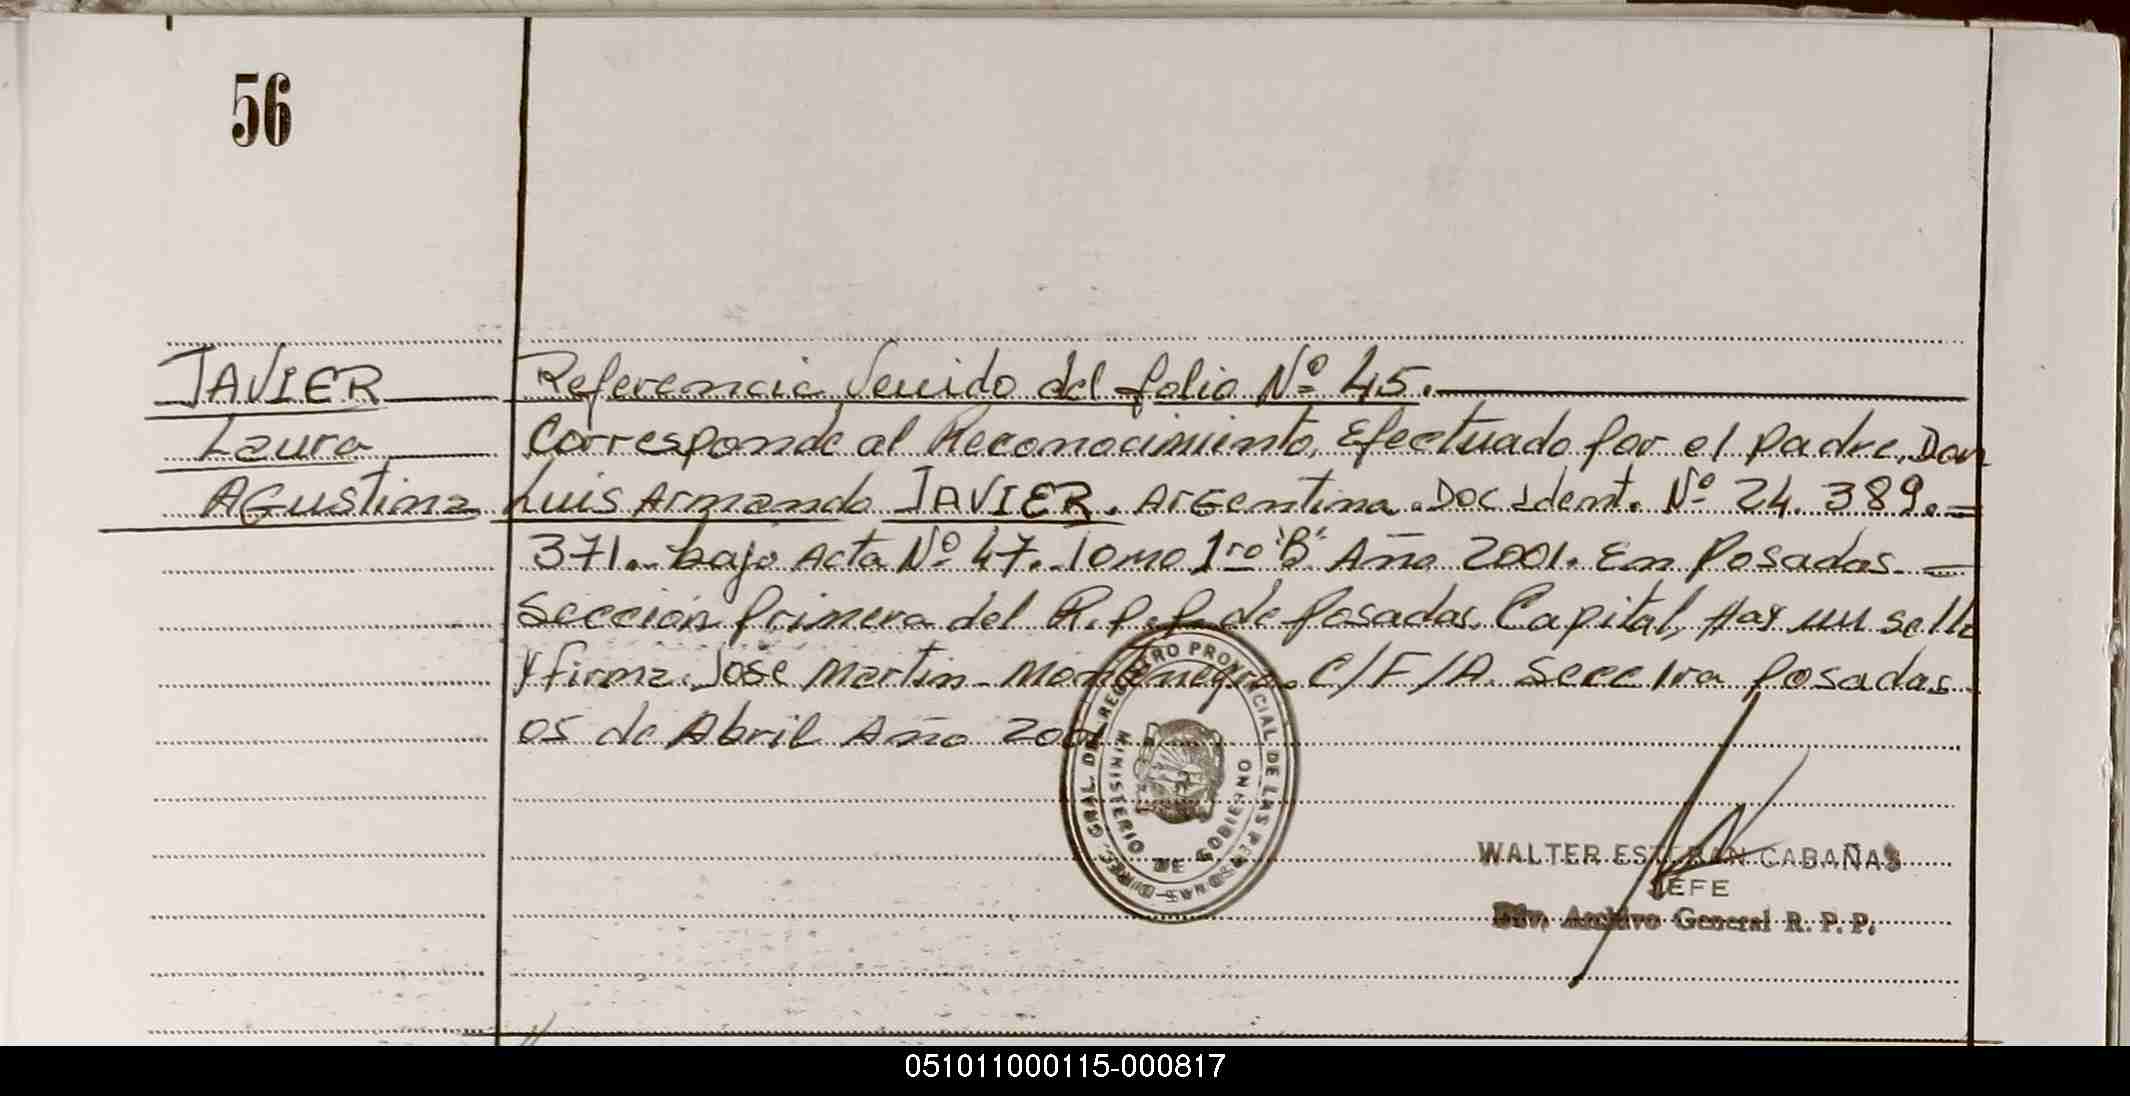 56
JAVIER Referencia Venido del folio Nº 45.
Laura Corresponde al Reconocimiento, Efectuado por el padre, Don
Agustina Luis Armando JAVIER. Argentina. Doc Ident. Nº 24.389.=
371.- bajo Acta Nº 47. Tomo 1ro "B" Año 2001. En Posadas.=
Sección Primera del R.P.P. de Posadas Capital, Hay un sello
y firma. José Martin Montenegro. C/F/A. Secc 1ra Posadas
05 de Abril Año 2001
DIREC. GRAL. DEL REGISTRO PROVINCIAL DE LAS PERSONAS
MINISTERIO DE GOBIERNO
WALTER ESTEBAN CABAÑAS
JEFE
Div. Archivo General R. P. P.
051011000115-000817